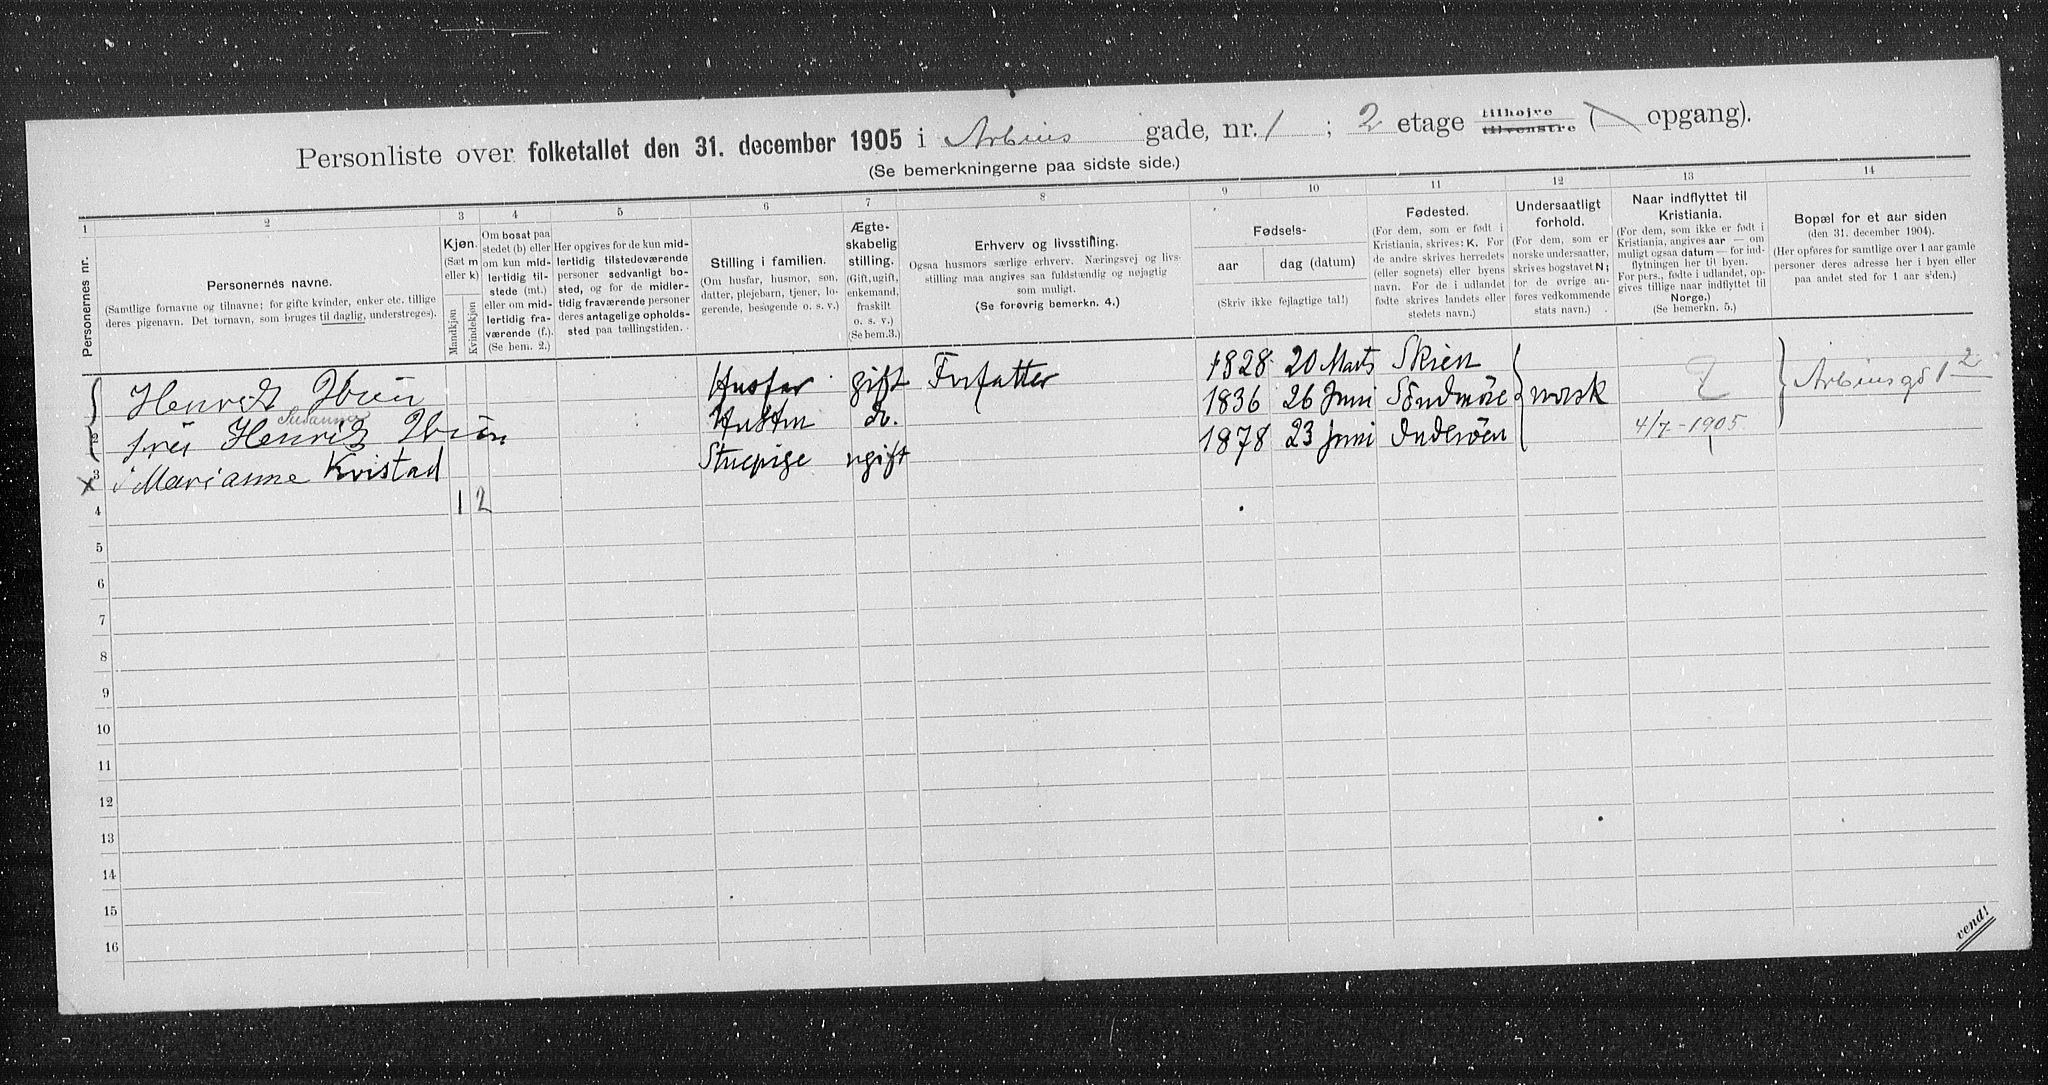 Personliste over folketallet den 31. december 1905 i Arbins gade, nr. 1 ; 2 etage tilhøjre tilvenstre ( opgang).
(Se bemerkningerne paa sidste side.)
1 2 3 4 5 6 7 8 9 10 11 12 13 14
Personernes nr.
Personernes navne.
(Samtlige fornavne og tilnavne; for gifte kvinder, enker etc. tillige
deres pigenavn. Det fornavn, som bruges til daglig, understreges).
Kjøn.
(Sæt m
eller k)
Mandkjøn
Kvindekjøn
Om bosat paa
stedet (b) eller
om kun mid-
lertidig til-
stede (mt.)
eller om mid-
lertidig fra-
værende (f.).
(Se bem. 2.)
Her opgives for de kun mid-
lertidig tilstedeværende
personer sedvanligt bo-
sted, og for de midler-
tidig fraværende personer
deres antagelige opholds-
sted paa tællingstiden.
Stilling i familien.
(Om husfar, husmor, søn,
datter, plejebarn, tjener, lo-
gerende, besøgende o. s. v.)
Ægte-
skabelig
stilling.
(Gift, ugift,
enkemand,
fraskilt
o. s. v.)
(Se bem. 3.)
Erhverv og livsstilling.
Ogsaa husmors særlige erhverv. Næringsvej og livs-
stilling maa angives saa fuldstændig og nøjagtig
som muligt.
(Se forøvrig bemerkn. 4.)
Fødsels-
aar
dag (datum)
(Skriv ikke fejlagtige tal!)
Fødested.
(For dem, som er født i
Kristiania, skrives: K. For
de andre skrives herredets
(eller sognets) eller byens
navn. For de i udlandet
fødte skrives landets eller
stedets navn.)
Undersaatligt
forhold.
(For dem, som er
norske undersaatter,
skrives bogstavet N;
for de øvrige an-
føres vedkommende
stats navn.)
Naar indflyttet til
Kristiania.
(For dem, som ikke er født i
Kristiania, angives aar — om
muligt ogsaa datum — for ind-
flytningen her til byen.
For pers., fødte i udlandet, op-
gives tillige naar indflyttet til
Norge.)
(Se bemerkn. 5.)
Bopæl for et aar siden
(den 31. december 1904).
(Her opføres for samtlige over 1 aar gamle
personer deres adresse her i byen eller
paa andet sted for 1 aar siden.)
Henrik Ibsen Husfar gift Forfatter 1828 20 Marts Skien norsk ? Arbinsg 1 2
Susanna
2 Henrik Ibsen Hustru do. 1836 26 Juni Söndmöre
x 3 Marianne Kvistad Stuepige ugift 1878 23 Juni Inderöen 4/7 - 1905
4 1 2
5
6
7
8
9
10
11
12
13
14
15
16
vend!